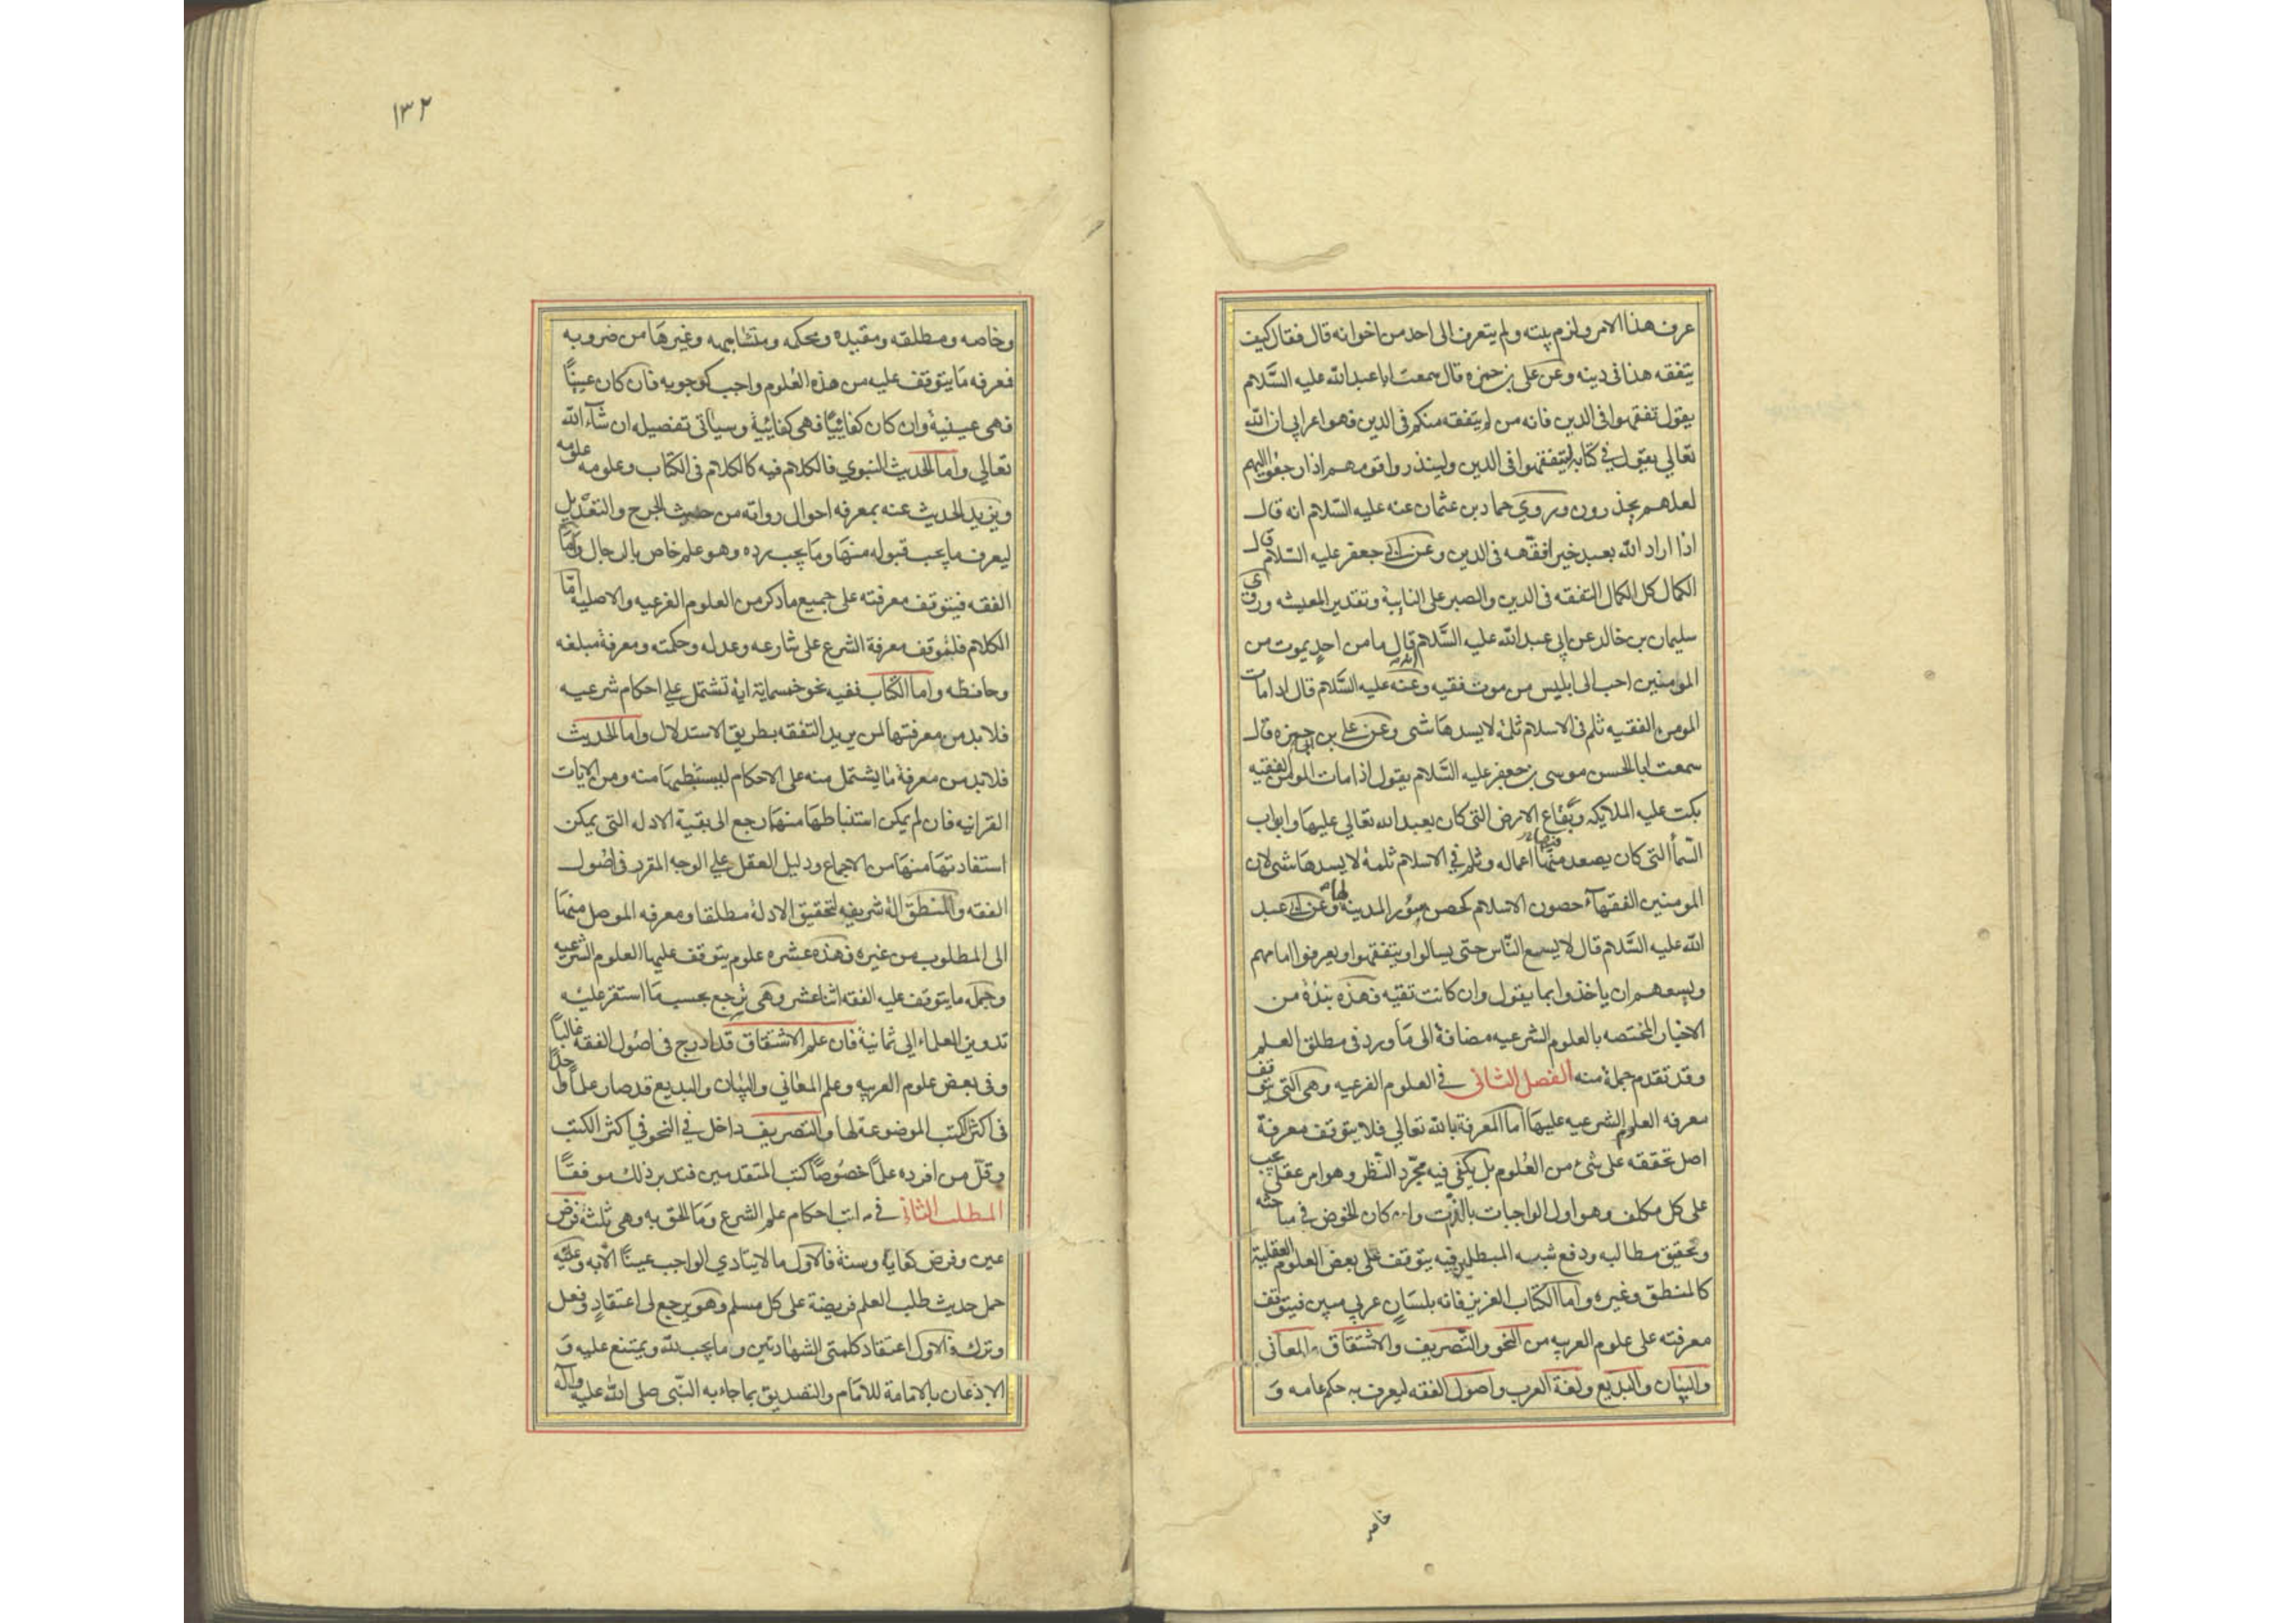 عرف هذا الامر ولزم بيته ولم يتعرف الى احد من اخوانه قال فقال كيف
يتفقه هذا فى دينه وعن على بن حمزه قال سمعت ابا عبد الله عليه السَّلام
يقول تفقهوا فى الدين فانه من لم يتفقه منكم فى الدين فهو اعرابي ان الله
تعالي يقول في كتابه ليتفقهوا فى الدين ولينذروا قومهم اذا رجعوا اليهم
لعلهم يحذرون وروي حماد بن عثمان عنه عليه السّلام انه قال
اذا اراد الله بعبد خيرا فقّهه فى الدين وعن ابي جعفر عليه السّلام قال
الكمال كل الكمال التفقه فى الدين والصبر على النايبة وتقدير المعيشه وروي
سليمان بن خالد عن ابي عبد الله عليه السَّلام قال ما من احدٍ يموت من
المومنين احب الى ابليس من موت فقيه وعنه عليه السَّلام قال اذا مات
المومن الفقيه ثلم فى الاسلام ثلمة لا يسدها شى وعن علي بن ابي حمزه قال
سمعت ابا الحسن موسى بن جعفر عليه السَّلام يقول اذا مات المومن الفقيه
بكت عليه الملايكه وبقاع الارض التى كان يعبد الله تعالي عليها وابواب
السّمأ التى كان يصعد فيها اعماله وثلم في الاسلام ثلمة لا يسدها شى لان
المومنين الفقهآء حصون الاسلام كحصن سور المدينه لها وعن ابي عبد
الله عليه السَّلام قال لا يسع النّاس حتى يسالوا او يتفقهوا ويعرفوا امامهم
ويسعهم ان ياخذوا بما يقول وان كانت تقيه فهذه نبذة من
الاخبار المختصه بالعلوم الشرعيه مضافة الى مَا ورد فى مطلق العلم
وقد تقدم جملة منه الفصل الثانى في العلوم الفرعيه وهى التى يتوقف
معرفه العلوم الشرعيه عليهَا اما المعرفة بالله تعالي فلا يتوقف معرفة
اصل تحققه على شئ من العُلوم بل يكفى فيه مجرّد النّظر وهو امر عقلى يجب
على كل مكلف وهو اول الواجبات بالذّات وان كان الخوض في مباحثه
وتحقيق مطالبه ودفع شبه المبطلين فيه يتوقف على بعض العلوم العقلية
كالمنطق وغيره واما الكتاب العزيز فانه بلسَانٍ عربي مبين فيتوقف
معرفته على علوم العربيه من النحو والتَّصريف والاشتقاق والمعانى
والبيٰان والبديع ولغة العرب واصول الفقه ليعرف به حكم عامه وَ
خاصه
١٣٢
وخاصه ومطلقه ومقيده ومحكمه ومتشابهه وغيرهَا من ضروبه
فمعرفه مَا يتوقف عليه من هذه العُلوم واجب كوجوبه فان كان عينيّاً
فهى عينية وان كان كفائيّاً فهى كفائيّة وسيأتى تفصيله ان شآء الله
تعالي واما الحديث النبوي فالكلام فيه كالكلام فى الكتاب وعلومه علومه
ويزيد الحديث عنه بمعرفه احوال رواته من حيث الجرح والتعديل
ليعرف ما يجب قبوله منهَا ومَا يجب رده وهو علم خاص بالرجال وَامّا
الفقه فيتوقف معرفته على جميع ما ذكر من العلوم الفرعيه والاصليه امّا
الكلام فلتوقف معرفة الشرع على شارعه وعدله وحكمته ومعرفة مبلغه
وحافظه واما الكتاب ففيه نحو خمسماية اية تشتمل علي احكام شرعيه
فلا بد من معرفتها لمن يريد التفقه بطريق الاستدلال واما الحديث
فلا بد من معرفة ما يشتمل منه على الاحكام ليستنبطهَا منه ومن الايات
القرانيه فان لم يمكن استنباطهَا منهَا رجع الى بقية الادله التى يمكن
استفادتهَا منهَا من الاجماع ودليل العقل علي الوجه المقرر فى اصُول
الفقه والمنطق الة شريفه لتحقيق الادلة مطلقا ومعرفه الموصل منهَا
الى المطلوب من غيره فهذه عشره علوم يتوقف عليهَا العلوم الشرعيه
وجملة ما يتوقف عليه الفقه اثنا عشر وهى ترجع بحسب مَا استقر عليه
تدوين العلماء الى ثمانية فان علم الاشتقاق قد ادرج فى اصُول الفقه غالباً
وفى بعض علوم العربيه وعلم المعانى والبيان والبديع قد صار علماً واحداً
فى اكثر الكتب الموضوعة لها والتصريف داخل في النحو في اكثر الكتب
وقلّ من افرده علمًا خصُوصًا كتب المتقدمين فتدبر ذلك موفقًا
المطلب الثانى في مراتب احكام علم الشرع وَمَا الحق به وهى ثلثة فرض
عين وفرض كفاية وسنة فالاول ما لا يتادي الواجب عينًا الّا به وعليه
حمل حديث طلب العلم فريضة على كل مسلم وهو يرجع الى اعتقادٍ وفعل
وترك فالاول اعتقاد كلمتى الشهادتين وما يجب لله ويمتنع عليه وَ
الاذعان بالامامة للامَام والتصديق بما جاء به النّبى صلى الله عليه وآله